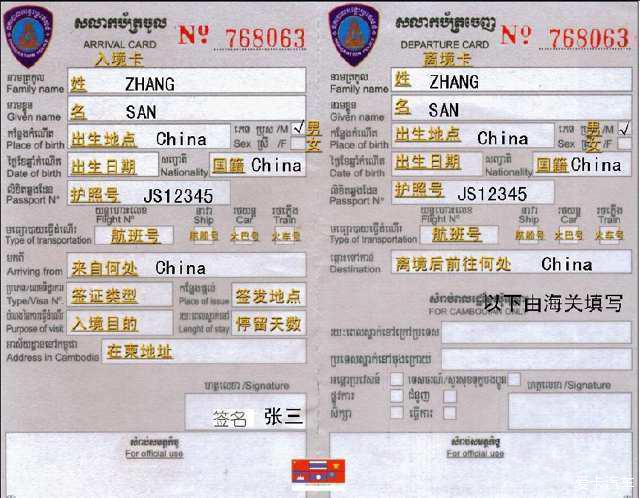 សលាកប័ត្រចូល
ARRIVAL CARD
Nº 768063
入境卡
នាមត្រកូល
Family name
姓 ZHANG
នាមខ្លួន
Given name
名 SAN
 កន្លែងកំណើត
Place of birth
出生地点 China
ភេទ ប្រុស/M ✓ 男
Sex ស្រី /F 女
ថ្ងៃខែឆ្នាំកំណើត
Date of birth
出生日期
សញ្ជាតិ
Nationality
国籍 China
លិខិតឆ្លងដែន
Passport Nº
护照号 JS12345
Flight Nº
នាវា
Ship
រថយន្ត
Car
រថភ្លើង
Train
មធ្យោបាយធ្វើដំណើរ
Type of transportation
航班号 航船号 火巴号 火车号
មកពី
Arriving from
来自何处 China
Type/Visa Nº.
签证类型
កន្លែងផ្តល់
Place of issue
签发地点
Purpose of visit
入境目的
រយៈពេលស្នាក់នៅ
Lenght of stay
停留天数
អាស័យដ្ឋាននៅកម្ពុជា
Address in Cambodia
在柬地址
ហត្ថលេខា /Signature
签名 张三
សំរាប់មន្ត្រី
For official use
សលាកប័ត្រចេញ
DEPARTURE CARD
Nº 768063
离境卡
នាមត្រកូល
Family name
姓 ZHANG
នាមខ្លួន
Given name
名 SAN
កន្លែងកំណើត
Place of birth
出生地点 China
ភេទ ប្រុស/M ✓ 男
Sex ស្រី /F 女
ថ្ងៃខែឆ្នាំកំណើត
Date of birth
出生日期
សញ្ជាតិ
Nationality
国籍 China
លិខិតឆ្លងដែន
Passport Nº
护照号 JS12345
Flight Nº
នាវា
Ship
រថយន្ត
Car
រថភ្លើង
Train
មធ្យោបាយធ្វើដំណើរ
Type of transportation
航班号 航船号 火巴号 火车号
ឆ្ពោះទៅកាន់
Destination
离境后前往何处 China
以下由海关填写
FOR CAMBODIAN ONLY
រយៈពេលស្នាក់នៅក្រៅប្រទេស
ប្រទេសស្នាក់នៅចុងក្រោយ
អន្តោប្រវេសន៍
ផ្លូវការ
ជំនួញ
សិក្សា
ធ្វើការ
ហត្ថលេខា/Signature
សំរាប់មន្ត្រី
For official use
爱卡汽车